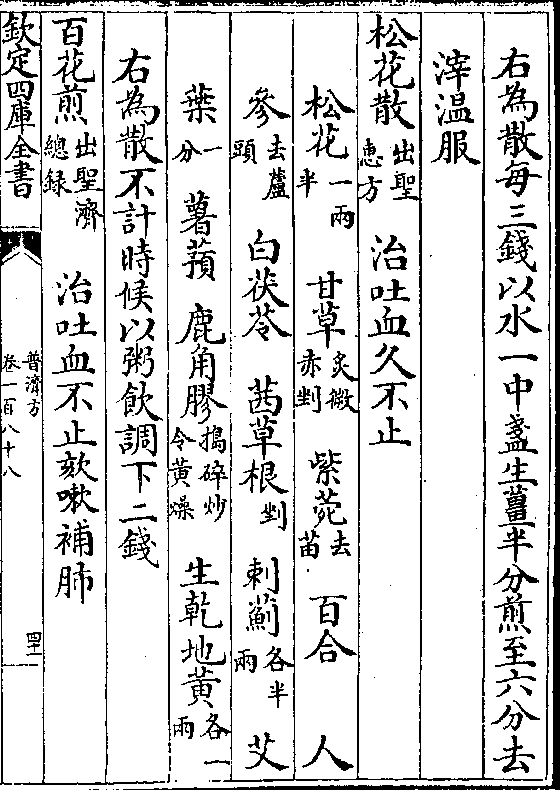 右為散每三錢以水一中盞生薑半分煎至六分去
滓温服
松花散出聖惠方 治吐血久不止
松花一兩半 甘草炙微赤剉 紫菀去苗 百合 人
參去蘆頭 白茯苓 茜草根剉 刺薊各半兩 艾
葉一分 薯蕷 鹿角膠搗碎炒令黄燥 生乾地黄各一兩
右為散不計時候以粥飲調下二錢
百花煎出聖濟總録 治吐血不止欬嗽補肺
欽定四庫全書 普濟方卷一百八十八 四十一